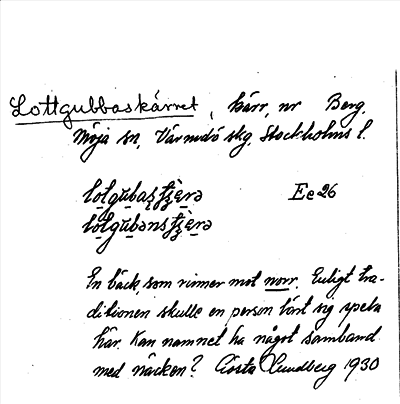 Lottgubbaskärret, kärr, nr Berg,
Möja sn, Värmdö skg, Stockholms l.
Ee 26
En bäck, som rinner mot norr. Enligt tra-
ditionen skulle en person lärt sig spela
här. Kan namnet ha något samband
med näcken? Gösta Lundberg 1930